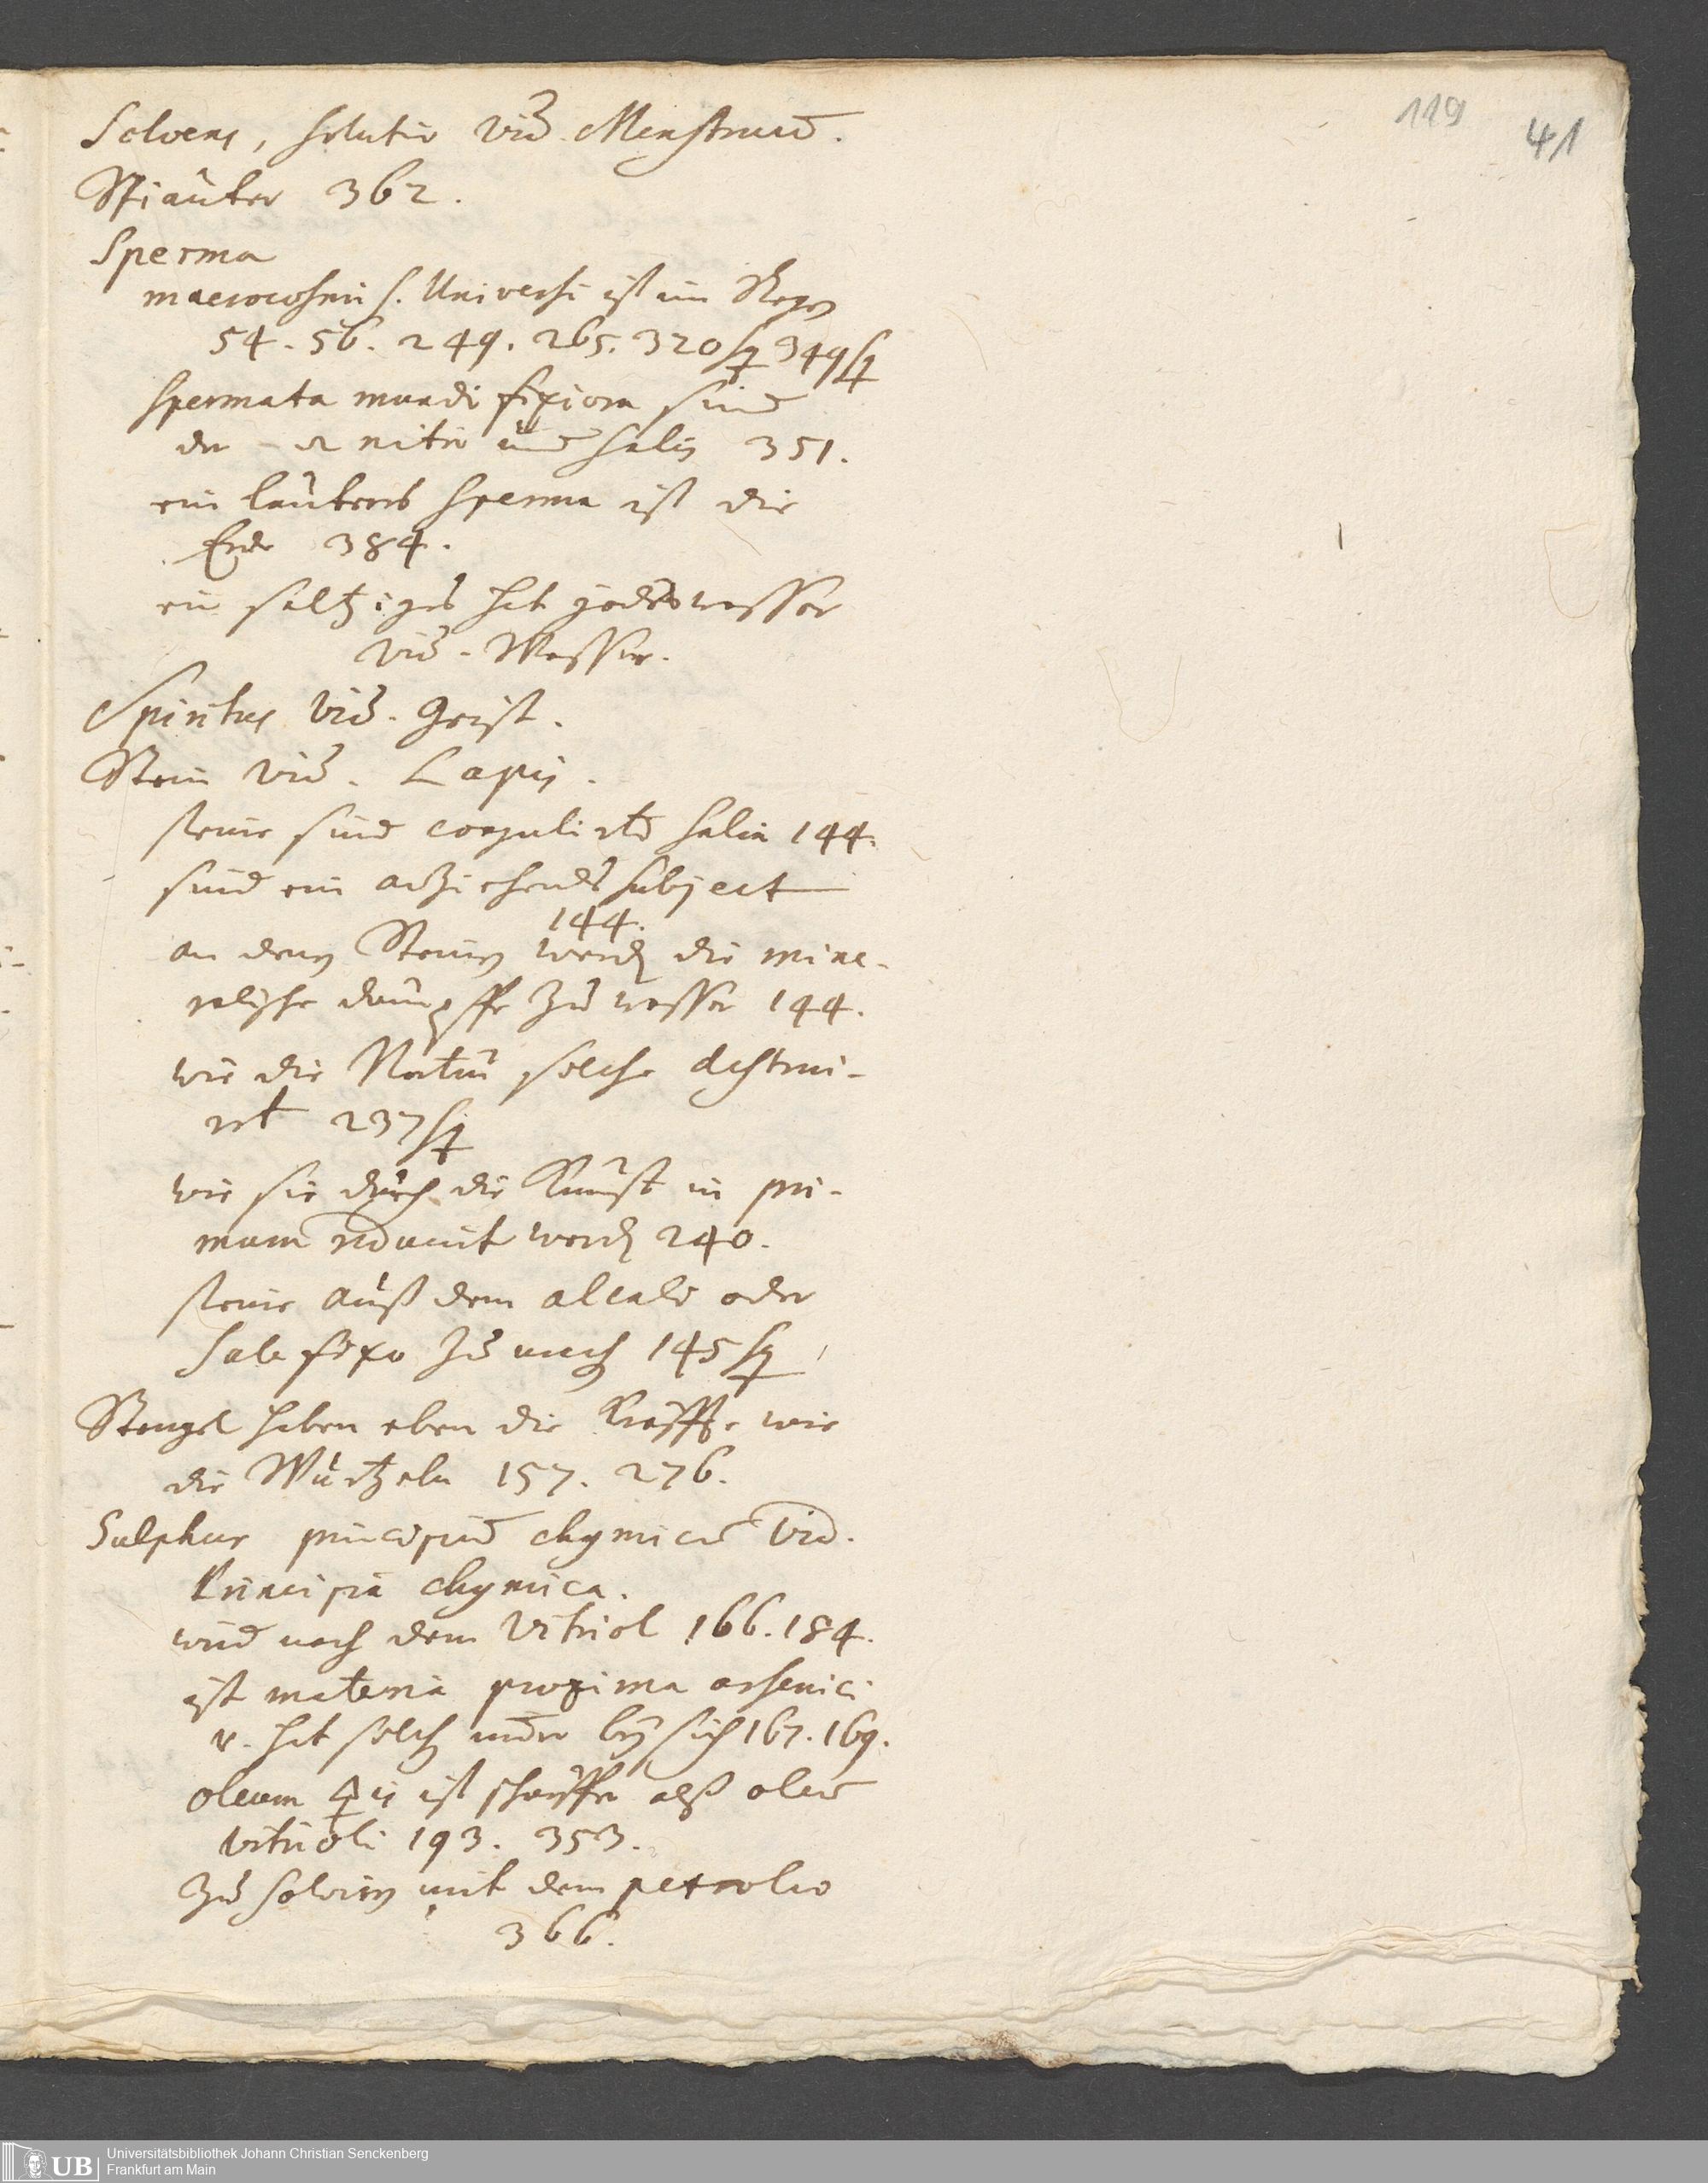 119 41
Solvens, solutio vid. Menstruū.
Spiauter 362.
Sperma
macrocosmi s. Universi ist im Regen
54. 56. 249. 265. 320 sq 349 sq
spermata mundi fixiora sind
der nitri und salis 351.
ein lauteres sperma ist die
Erde 384.
ein saltziges hat jedes wasser
vid. Wasser.
Spiritus vid. Geist.
Stein vid. Lapis.
steine sind coagulirte salia 144.
sind ein anziehendes subject
144.
an denen Steinen werden die mine-
ralische dämpffe zu wasser 144.
wie die Natur solche destrui-
ret 237 sq
wie sie durch die Kunst in pri-
mam reducirt werden 240.
steine auß dem alcali oder
sale fixo zu machen 145 sq
Stengel haben eben die Kräffte wie
die Wurtzeln 157. 276.
Sulphur principiū chymicū vid.
Principia chymica.
wird nach dem Vitriol 166. 184.
ist materia proxima arsenici
v. hat solchen bey sich 167. 169.
oleum 🜍is ist schärffer alß oleū
vitrioli 193. 353.
zu solviren mit dem petroleo
366.
UB Universitätsbibliothek Johann Christian Senckenberg
Frankfurt am Main